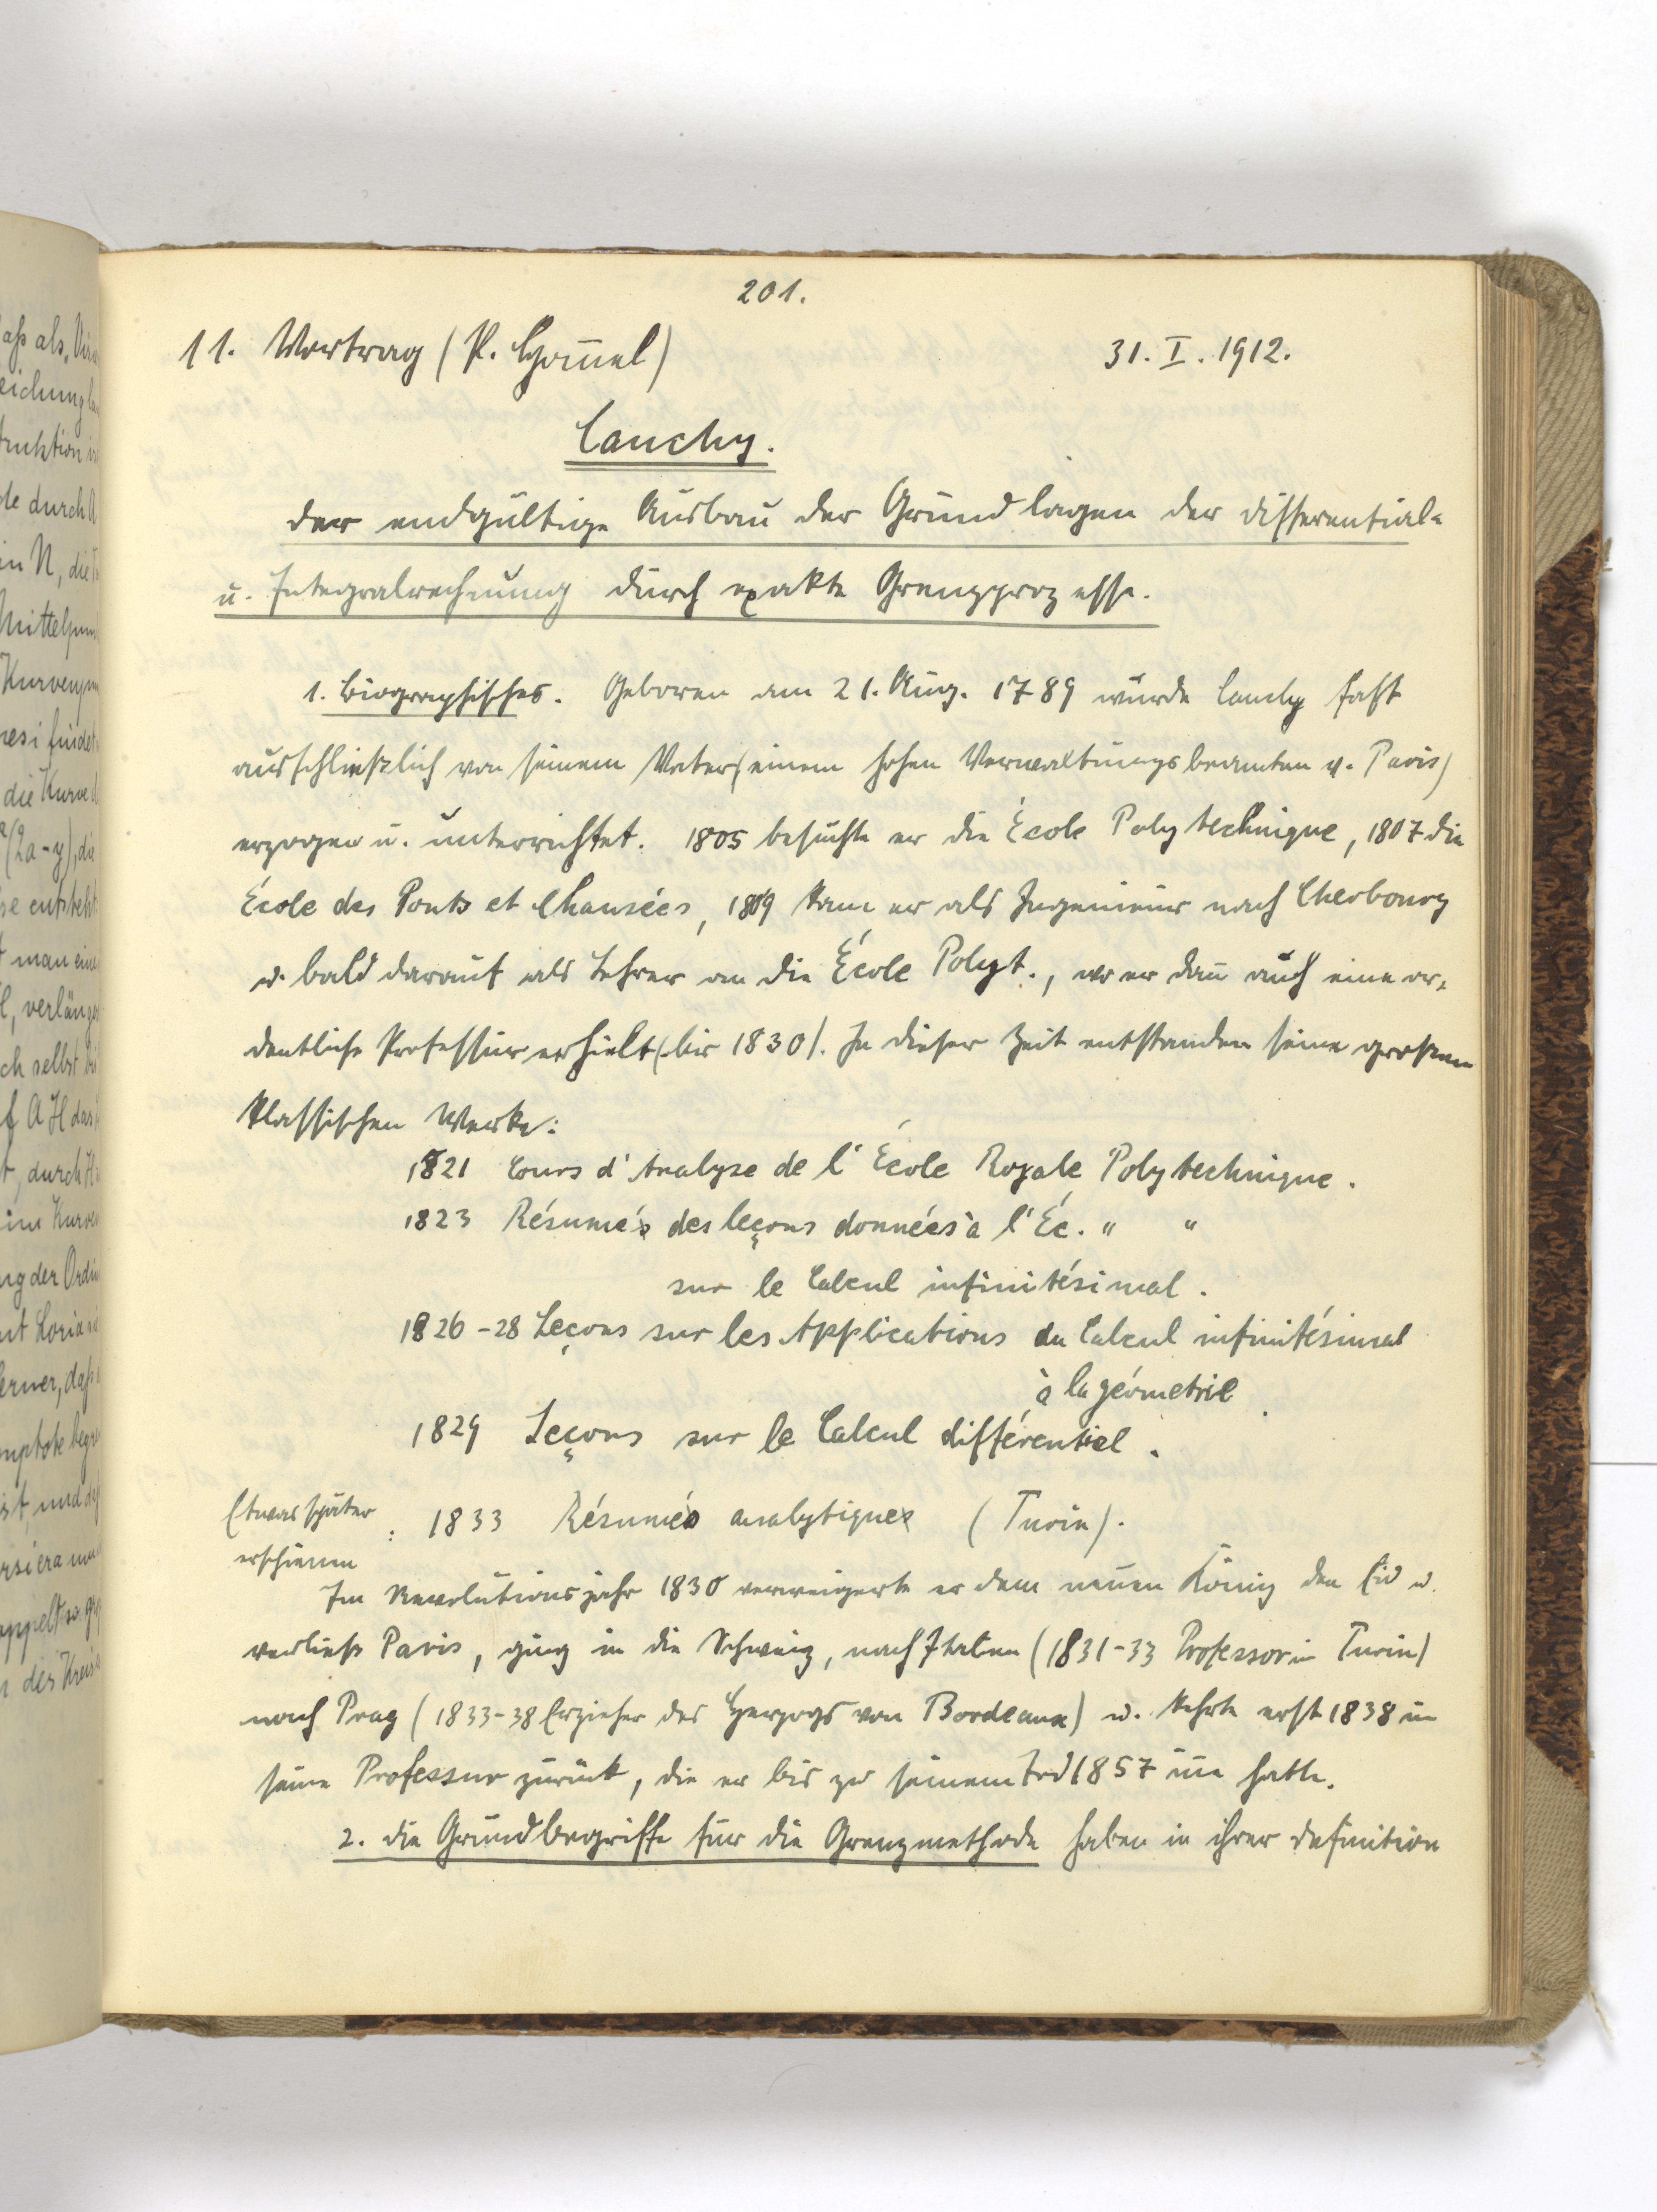 201.
11. Vortrag (P. Hom̄el) 31. I. 1912.
Cauchy.
Der endgültige Ausbau der Grundlagen der Differential-
u. Integralrechnung durch exakte Grenzprozesse.
1. Biographisches. Geboren am 21. Aug. 1789 wurde Cauchy fast
ausschließlich von seinem Vater (einem hohen Verwaltungsbeamten v. Paris)
erzogen u. unterrichtet. 1805 besuchte er die École Polytechnique, 1807 die
École des Ponts et Chausées, 1809 kam er als Ingenieur nach Cherbourg
u. bald darauf als Lehrer an die École Polyt., wo er dan̄ auch eine or-
dentliche Professur erhielt (bis 1830). In dieser Zeit entstanden seine grossen
klassischen Werke:
1821 Cours d'Analyse de l'École Royale Polytechnique.
1823 Résumés des leçons données à l'Éc. " "
sur le Calcul infinitésimal.
1826-28 Leçons sur les Applications du Calcul infinitésimal
à la géometrie.
1829 Leçons sur le Calcul différentiel.
Etwas später
erschienen : 1833 Résumés analytiques (Turin).
Im Revolutionsjahr 1830 verweigerte er dem neuen König den Eid u.
verließ Paris, ging in die Schweiz, nach Italien (1831-33 Professor in Turin)
nach Prag (1833-38 Erzieher des Herzogs von Bordeaux) u. kehrte erst 1838 in
seine Professur zurück, die er bis zu seinem Tod 1857 in̄e hatte.
2. Die Grundbegriffe für die Grenzmethode haben in ihrer Definition